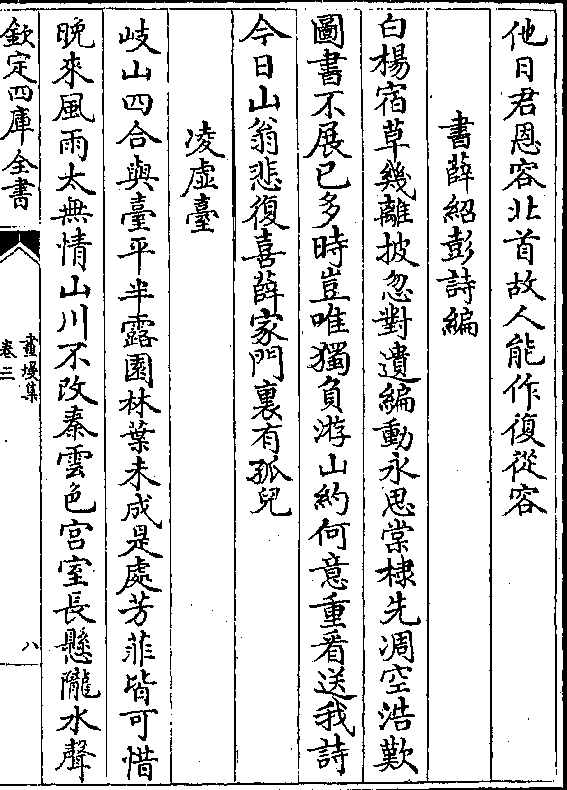 他日君恩容北首故人能作復從容
書薛紹彭詩編
白楊宿草幾離披忽對遺編動永思棠棣先凋空浩歎
圖書不展已多時豈唯獨負游山約何意重看送我詩
今日山翁悲復喜薛家門裏有孤兒
凌虛臺
岐山四合與臺平半露園林葉未成是處芳菲皆可惜
晚來風雨太無情山川不改秦雲色宫室長懸隴水聲
欽定四庫全書
畫墁集
卷三
八